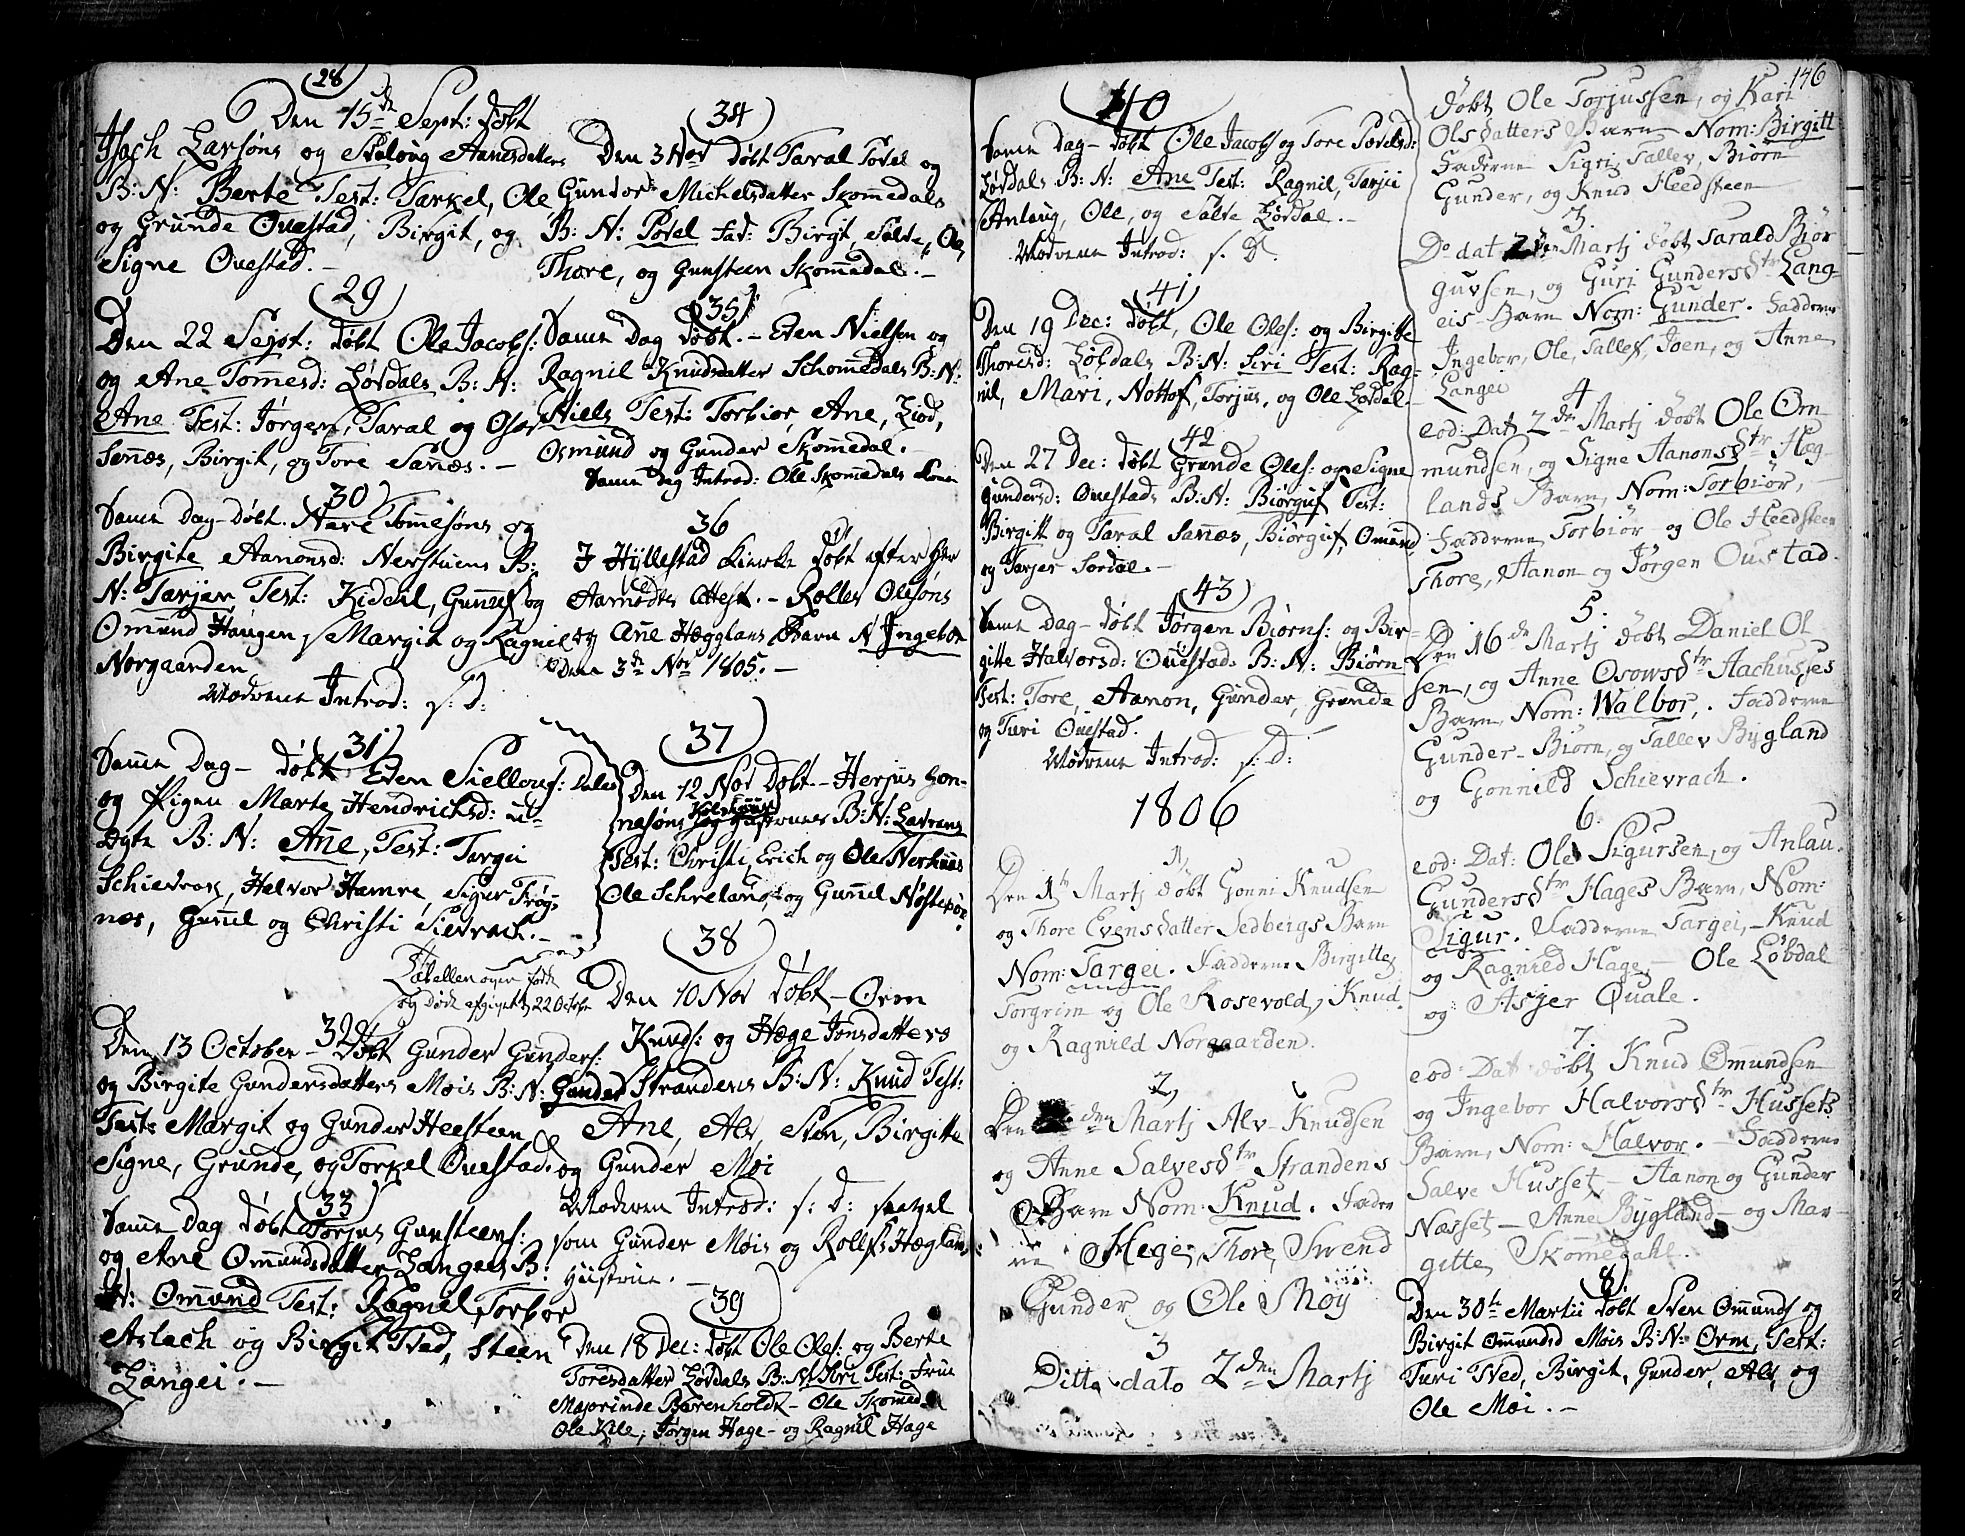 28
Den 15de Sept: døbt
Isach Larsøns og Aanesdatters
B: N: Berte Test: Tarkel, Ole
og Grunde Ouestad, Birgit, og
Signe Ouestad. –
29
Den 22 Sept: døbt Ole Jacobs:
og Ane Tommesd: Løvdals B: N:
Ane Test: Jørgen, Taral og Osor
Sennæs, Birgit, og Tore Sanæs. –
30
Samme Dag – døbt. Nare Tommesøns og
Birgite Aanonsd: Nerstuens B:
N: Tarjer Test: Kideril, Gunnuf og
Omund Haugen, Margit og Ragnil
Norgaarden
Modrene Introd: s: D:
31
Samme Dag – døbt Even Siellous: Dales
og Pigen Marte Hendrichsd: u-
ægte B: N: Ane, Test: Targei
Schievrak, Halvor Hamre, Sigur Frøg-
næs, Gunnil og Christi Sievrach. –
Tabellen over fødte
og døde afgivet 22 Octobr
32
Den 13 October – Døbt Gunder Gunders:
og Birgite Gundersdatters Mois B: N: Gunder
Test: Margit og Gunder Heesteen,
Signe, Grunde, og Torkel Ouestad.
33
Samme Dag døbt Torjus Gunsteens:
og Ane Ommundsdatter Langeis B:
N: Ommund Test: Ragnel, Torbor
Aslach og Birgit Tved, Steen
Langei. –
34
Den 3 Nov døbt Taral Povel og
Gundor Michelsdatter Skommedals
B: N: Povel Fad: Birgit, Salve, Ole,
Thore, og Gunsteen Skommedal. –
35
Samme Dag døbt. – Even Nielsen og
Ragnil Knudsdatter Schommedals B: N:
Niels Test: Torbiør, Ane, Liod,
Osmund og Gunder Skommedal. –
Samme Dag Introd: Ole Skommedals Kone
36
I Hyllestad Kierke døbt efter Hr
Aamodts Attest. – Rollev Olesøns
og Ane Hægglans Barn N Ingebor
Den 3de Nov 1805. –
37
Den 12 Nov Døbt – Herjus Gon-
nesøns B: N: Lavrans
Test: Christi, Erich og Ole Nerhuus
Ole Schreland, og Gunnil Nøstepør.
38
Den 10 Nov døbt – Orm
Knuds: og Hæge Jonsdatters
Strandens B: N: Knud Test:
Ane, Alv, Sven, Birgitte
og Gunder Moi
Modren Introd: s: D: saavel
som Gunder Mois og Rollefs Hæglans
Hustrue. –
39
Den 18 Dec: døbt Ole Oles: og Berte
Toresdatter Løvdals B: N: Siri Test: Frue
Majorinde Barenholdt – Ole Skomedal
Ole Kile, Jørgen Hage – og Ragnil Hage
40
Samme Dag – døbt Ole Jacobs og Tore Povelsd:
Løvdals B: N: Ane Test: Ragnil, Tarjei
Anlaug, Ole, og Salve Løvdal. –
Modrene Introd: s. D.
41
Den 19 Dec: døbt, Ole Oles: og Birgitte
Thoresd: Løbdals B: N: Siri Test: Rag-
nil, Mari, Nottof, Torjus, og Ole Løvdal. –
42
Den 27 Dec: døbt Grunde Oles: og Signe
Gundersd: Ouestads B: N: Biørguf Test:
Birgitt og Taral Sanæs, Biørguf, Omund
og Tarjer Sordal. –
43
Samme Dag – døbt Jørgen Biørns: og Bir-
gitte Halvorsd: Ouestads B: N: Biørn
Test: Tore, Aanon, Gunder, Grunde
og Turi Ouestad.
Modrene Introd: s: D:
1806
1
Den 1te Martj døbt Gonni Knudsen
og Thore Evensdatter Sedbergs Barn
Nom: Targei. Fadderne Birgitte,
Torgrim og Ole Rosevold, Knud
og Ragnild Norgaarden.
2
Den den Martj Alv Knudsen
og Anne Salvesdtr Strandens
Barn Nom: Knud. Fadder
ne Hege, Thore, Swend
Gunder og Ole Moy
3
Ditto dato 2den Martj
146
døbt Ole Torjussen, og Kari
Olsdatters Barn – Nom: Birgitt
Fadderne Sigri, Tallev, Biørn
Gunder, og Knud Heedsteen
3.
Do dat 2den Martj døbt Tarald Biør
guvsen, og Guri Gundersdtr Lang-
eis Barn Nom: Gunder. Fadderne
Ingebor, Ole, Tallef, Joen, og Anne
Langei
4
eod: Dat 2den Martj døbt Ole Om
mundsen, og Signe Aanonsdtr Hæg-
lands Barn, Nom: Torbiør, –
Fadderne Torbiør – og Ole Heedsteen
Thore, Aanon og Jørgen Oustad.
5.
Den 16de Martj døbt Daniel Ol
sen, og Anne Osowsdtr Aachuses
Barn, Nom: Walbor, Fadderne
Gunder – Biørn, og Tallev Bygland
og Gonnild Schievrach.
6.
eod: Dat: Ole Sigursen, og Anlau.
Gundersdtr Hages Barn, Nom:
Sigur. Fadderne Targei, – Knud
og Ragnild Hage, – Ole Løbdal
og: Asjer Quale.
7.
eod: Dat døbt Knud Ommundsen
og Ingebor Halvorsdtr Hussets
Barn, Nom: Halvor. – Fadderne
Salve Husset, – Aanon og Gunder
Næsset – Anne Bygland – og Mar-
gitte Skommedahl.
8
Den 30te Martii døbt Sven Omunds og
Birgit Omundsd Mois B: N: Orm, Test:
Turi Tved, Birgit, Gunder, Alv, og
Ole Moi. –